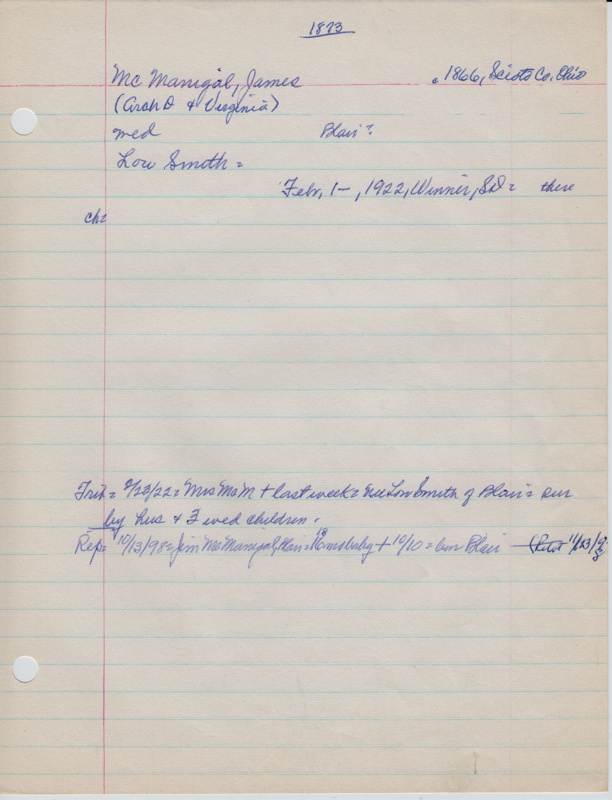 1873
McManigal, James c 1866, Scioto Co. Ohio
(Arch D & Virginia)
med Blair?
Lou Smith =
Febr, 1–, 1922, Winner, SD = there
ch=
Trib = 2/23/22 = Mrs McM + last week = nee Lou Smith of Blair = sur
by hus & 7 wed children.
Rep = 10/13/98 = Jim McManigal, Blair = 18 mos baby + 10/10 = bur Blair (Pilot 11/23/98